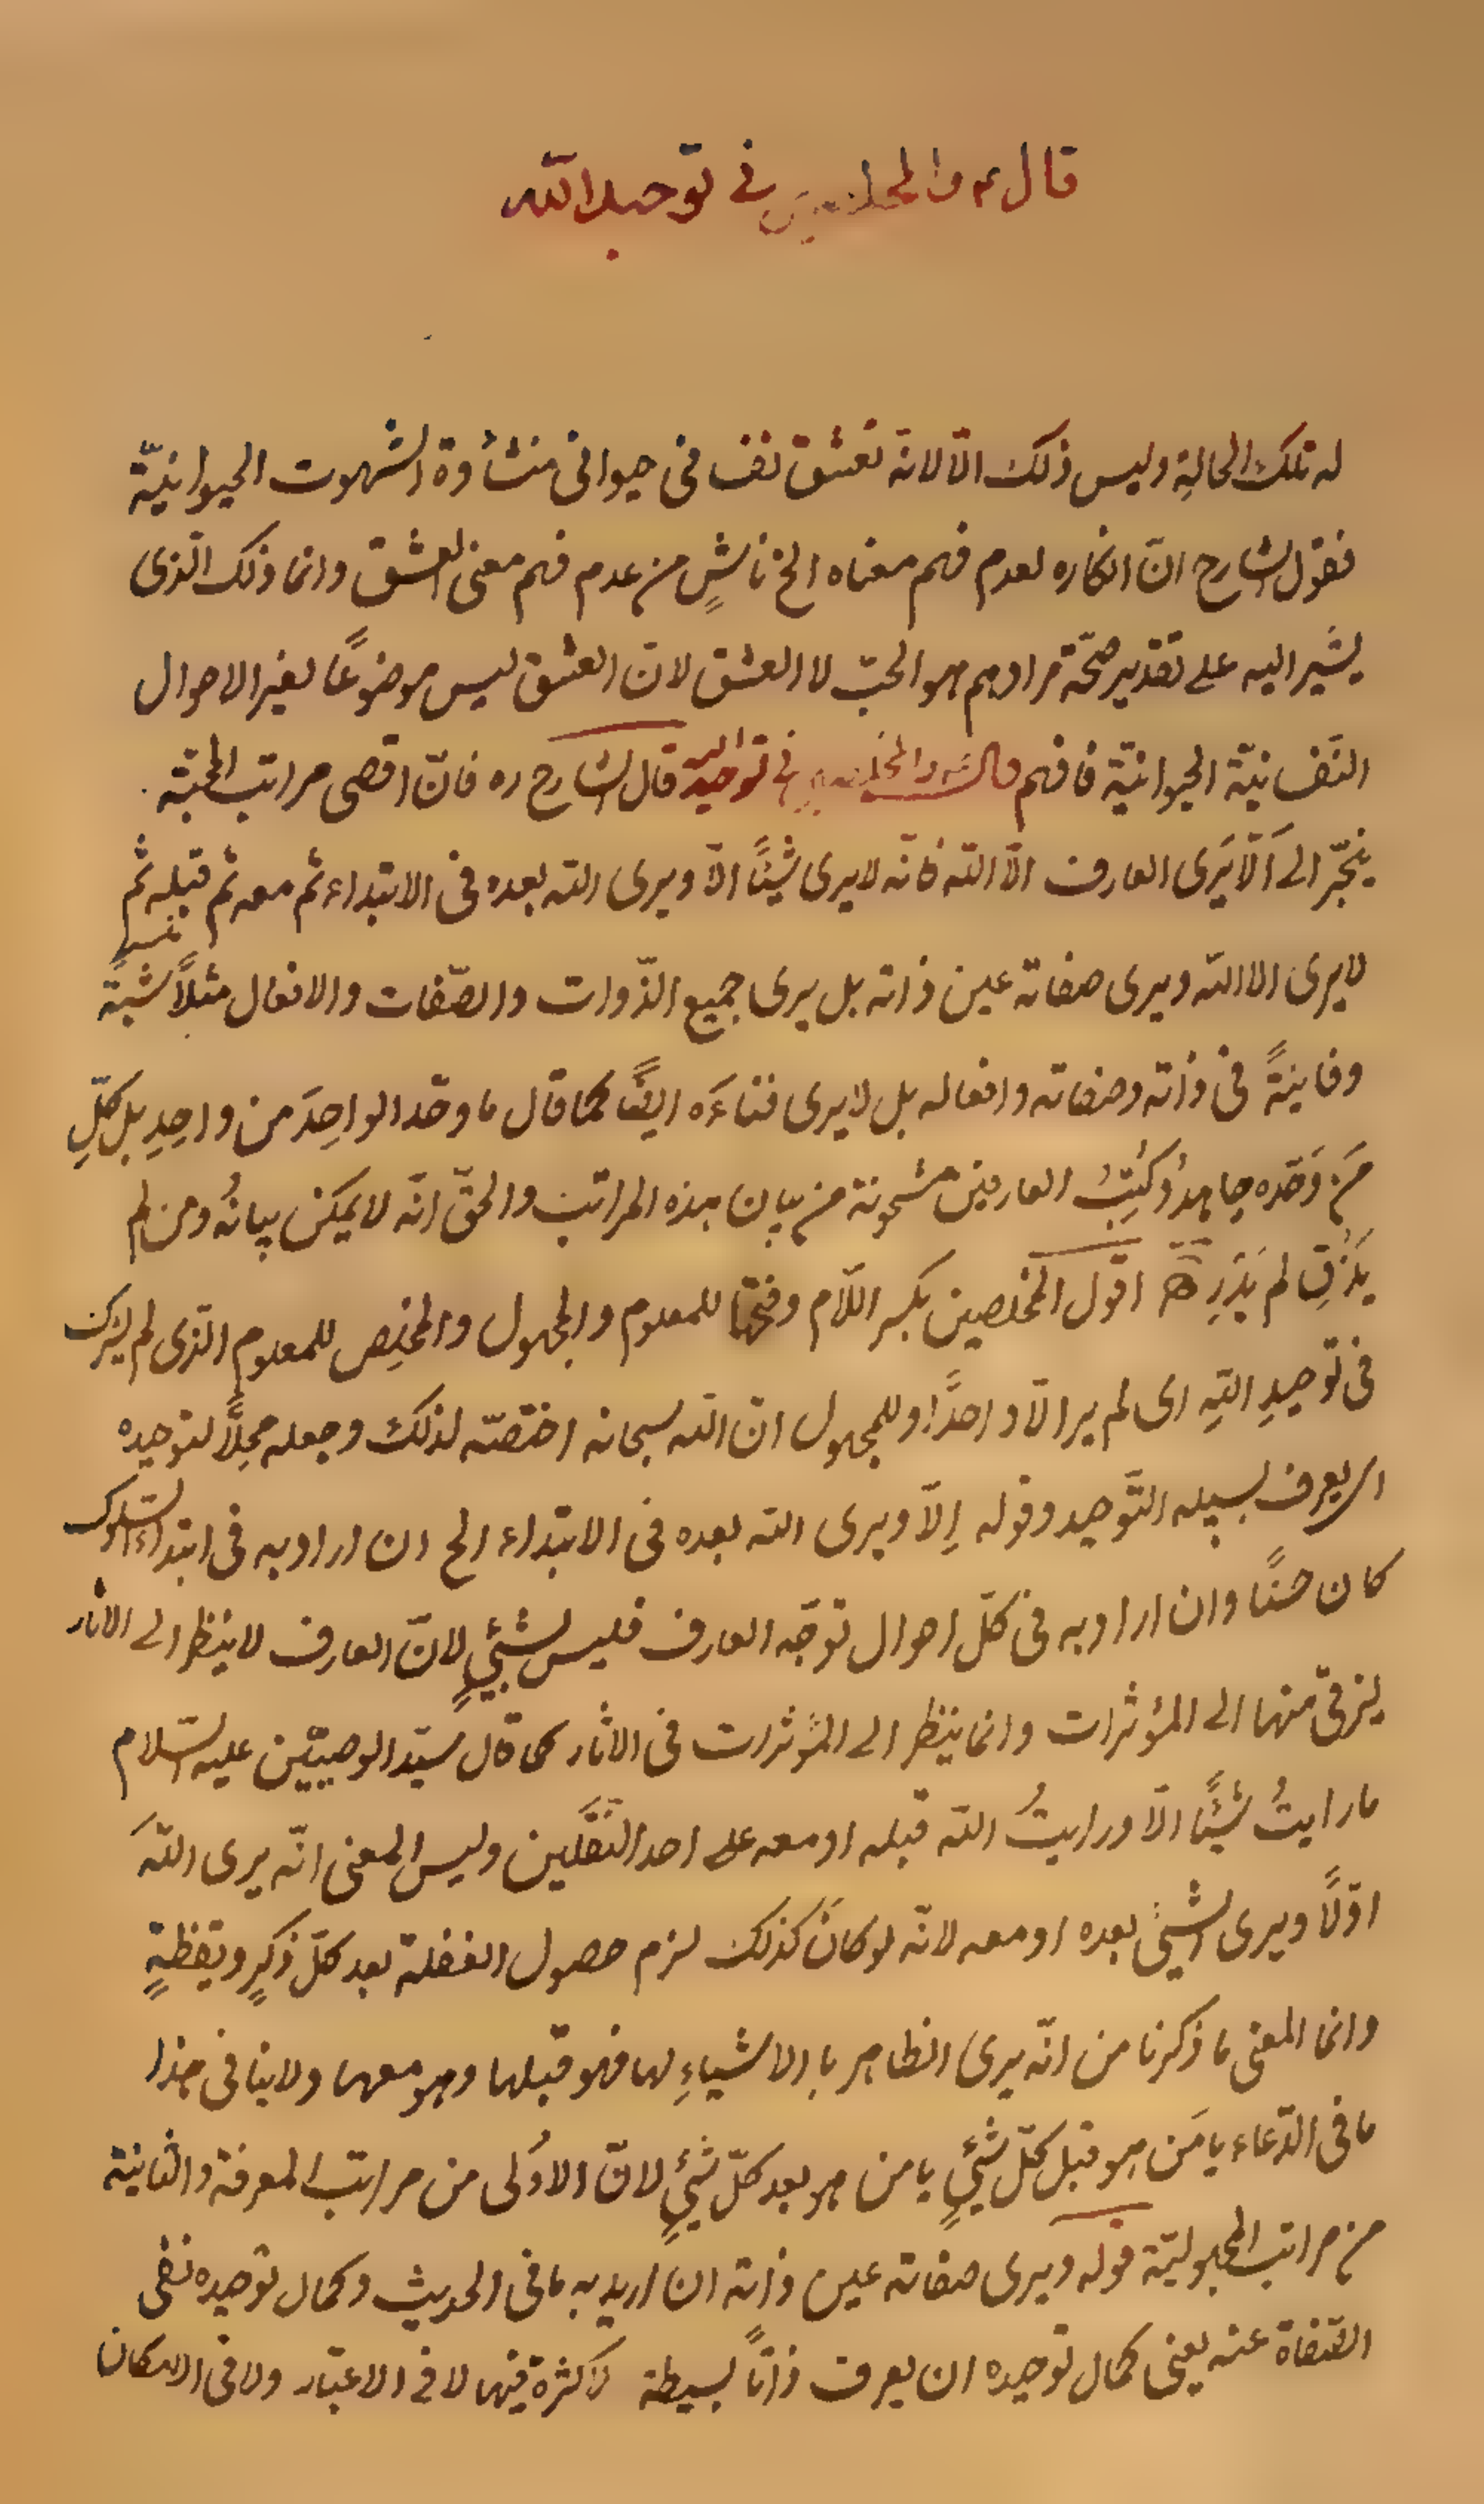 قال ع والمخلصين في توحيد الله
له تلك الحالة وليس ذلك الّا لانه تعشق نفسانی حيوانی منشأوة الشهوت الحيوانيّة
فقول الشارح انّ انكاره لعدم فهم معناه الخ ناشٍ من عدم فهم معنی العشق وانما ذلك الّذی
يشير اليه علی تقدير صحّة مرادهم هو الحبّ لا العشق لانّ العشق ليس موضوعًا لغير الاحوال
النّفسانيّة الحيوانيّة فافهم قال ع والمخلصين في توحيد الله قال الشارح ره فانّ اقصی مراتب المحبّة
ينجّر الَی اَلّا يَری العارف الّا اللّه فانّه لا يری شيئًا الّا ويری اللّه بعده فی الابتداء ثم معه ثم قبله ثم
لا يری الا اللّه ويری صفاته عين ذاته بل يری جميع الذّوات والصّفات والافعال مثلاً شبةً
وفانيةً فی ذاته وصفاته وافعاله بل لا يری فناءَه ايضًا كما قال ما وحّد الواحِدَ من واحِدِ بل كلّ
مَن وَحّده جاهدُ وكتبُ العارفين مشحونة من بيان هذه المراتب والحقّ انّه لا يمكن بيانُه ومن لم
يَذُقِ لم يَدْرِ اقول المخلصين بكسر اللّام وفتحها للمعلوم والمجهول والمخلِص للمعلوم الّذی لم يشرك
فی توحيدِ اللّهِ ای لم ير الّا واحدًا وللمجهول انّ اللّه سبحانه اختصّه لذلك وجعله محلًّا لتوحيده
ای يعرف بسبيله التّوحيد وقوله اِلّا ويری اللّه بعده فی الابتداء الخ ان اراد به فی ابتداء السّلوك
كان حسنًا وان اراد به فی كلّ احوال توجّه العارف فليس بشیءٍ لانّ العارف لا ينظر الی الاثار
ليرقّی منها الی المؤثرات وانما ينظر الی المؤثرات فی الاثار كما قال سيّد الوصيّين عليه السّلام
ما رايتُ شيئًا الّا ورايتُ اللّه قبله او معه علی احد النّقلين وليس المعنی انّه يری اللّهَ
اوّلًا ويری الشیءَ بعده او معه لانّه لو كانَ كذلك لزم حصول الغفلة بعد كلّ ذكرٍ ويقظةٍ
وانما المعنی ما ذكرنا من انّه يری الظاهر بالاشياءِ لها فهو قبلها وهو معها ولا ينافی هذا
ما فی الدّعاء يا مَن هو قبل كلّ شیءٍ يا من هو بعد كلّ شیءٍ لانّ الاُولی من مراتب المعرفة والثانية
من مراتب المجهوليّة قوله ويری صفاته عين ذاته ان اريد به ما فی الحديث وكمال توحيده نفی
الصّفاة عنه يعنی كمال توحيده ان يعرف ذاتاً بسيطة لا كثرة فيها لا فی الاعتبار ولا فی الامكان